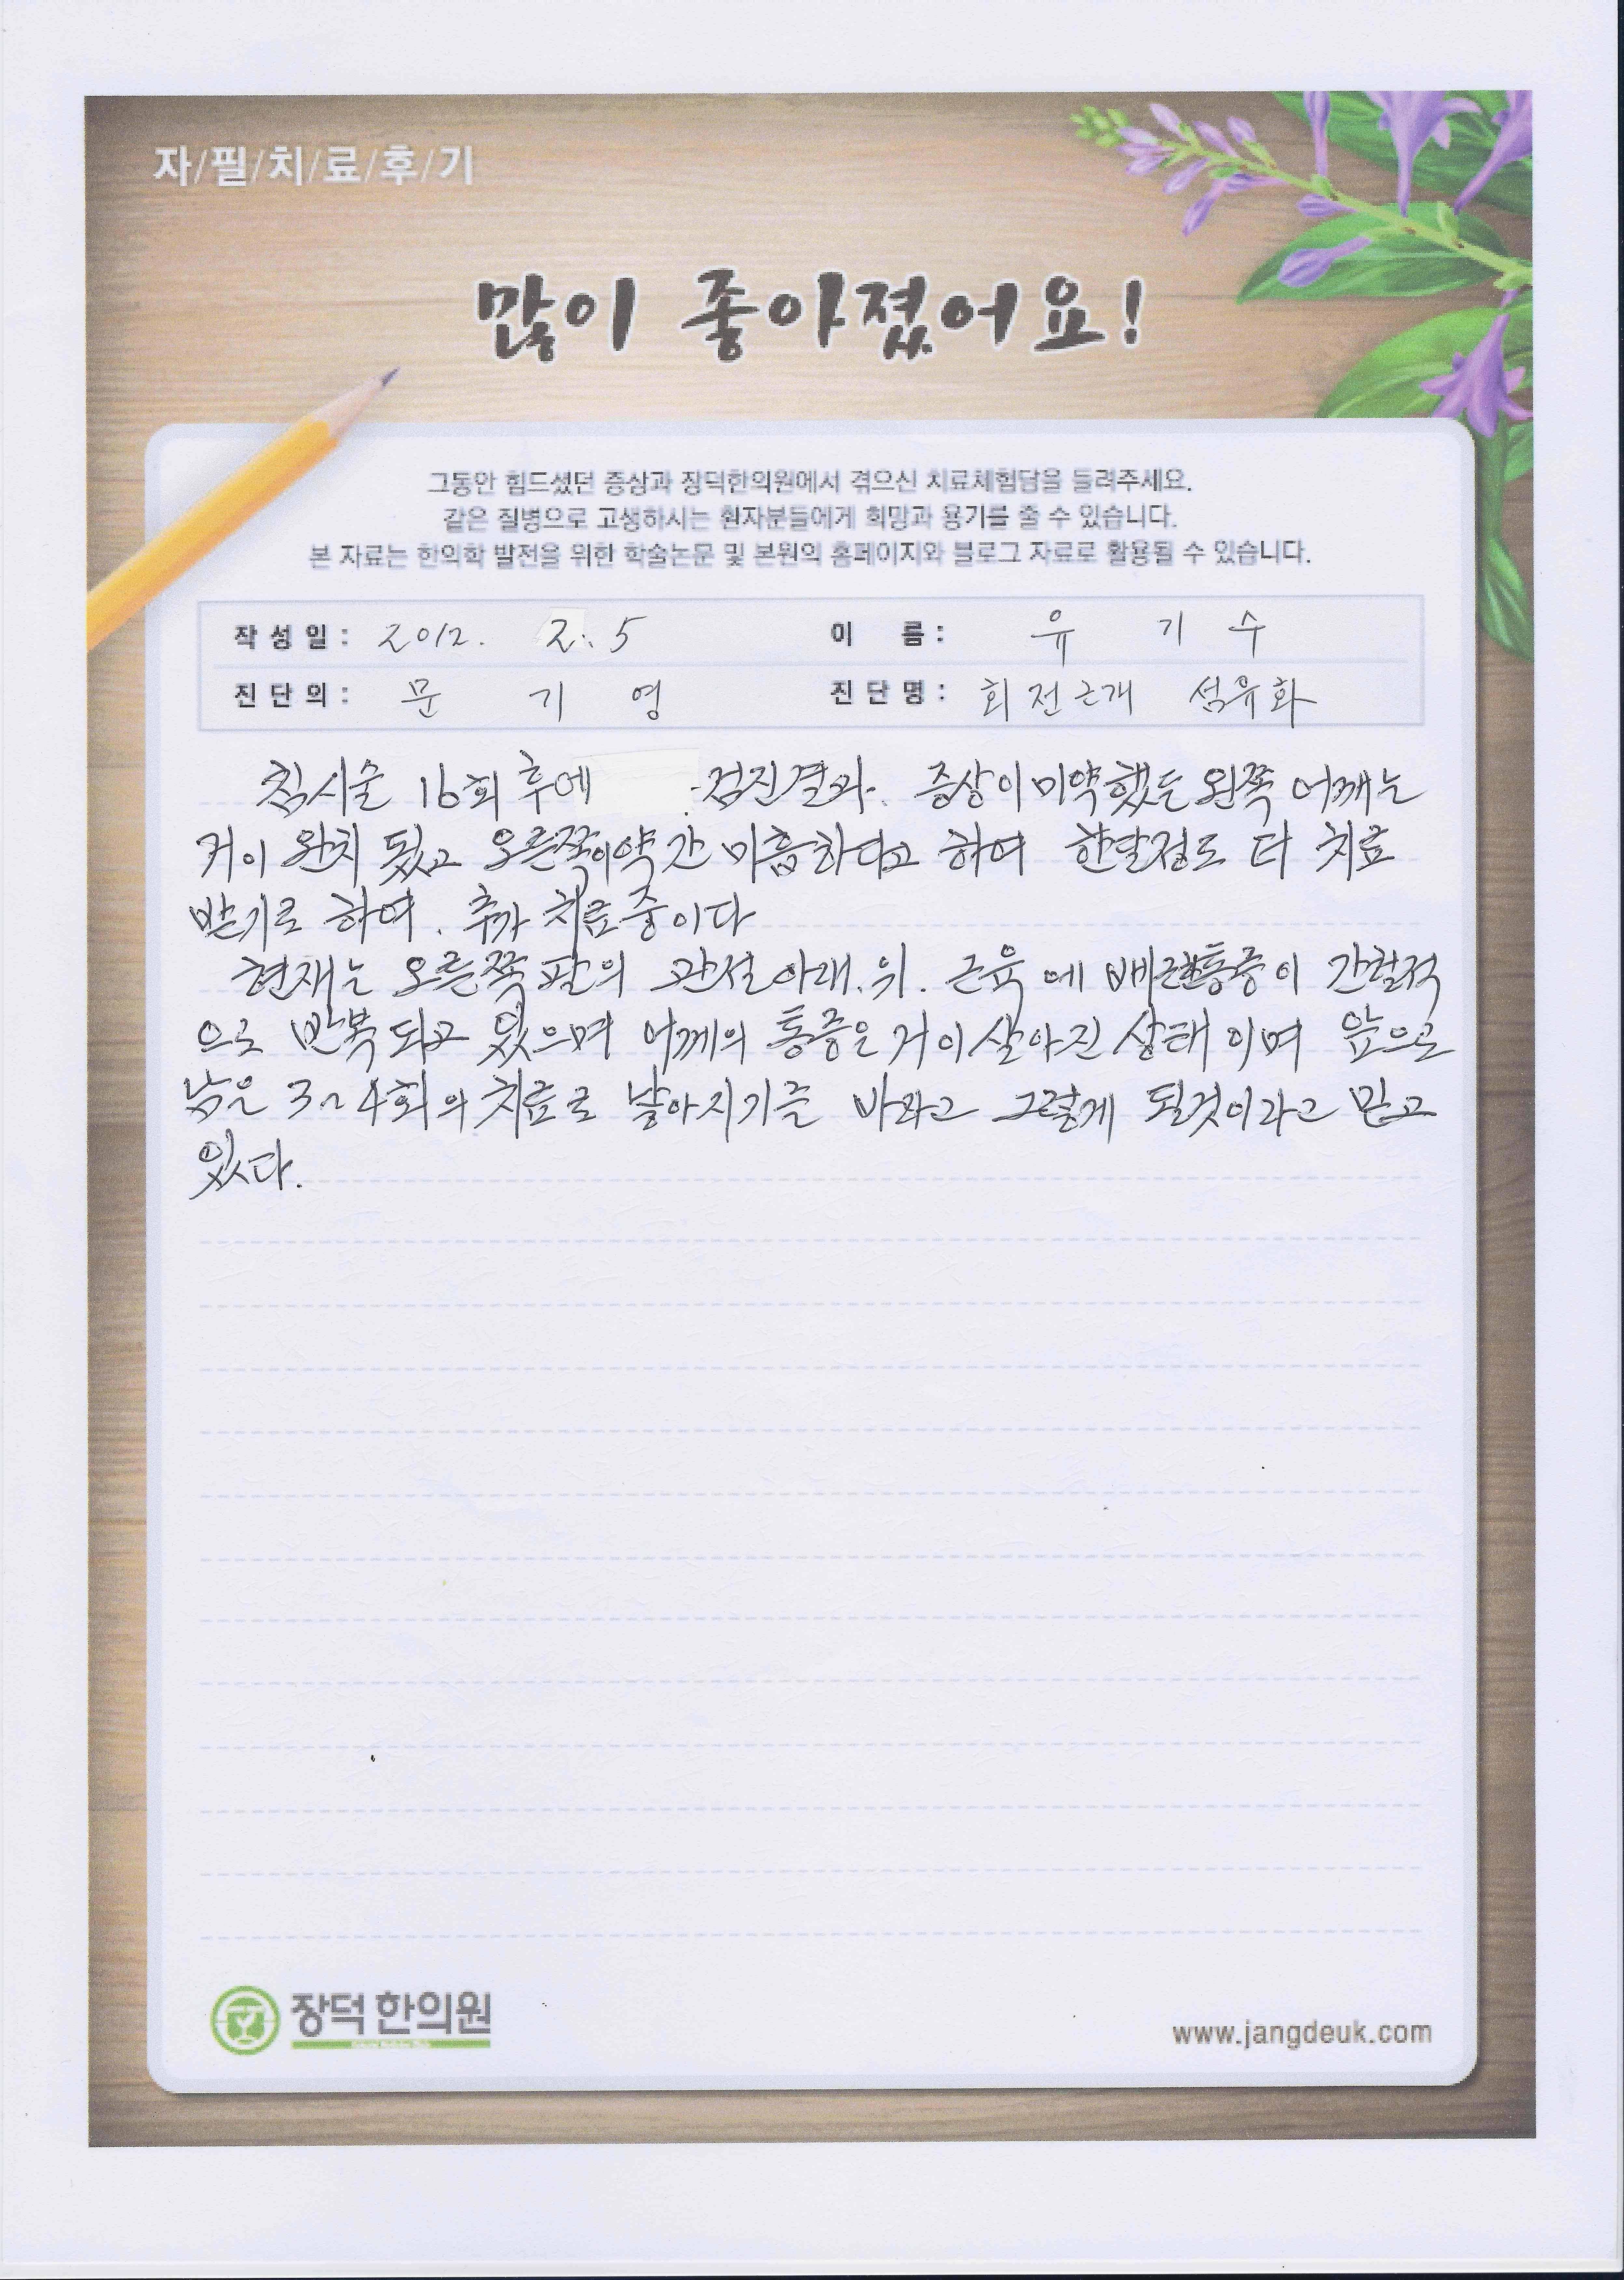 자/필/치/료/후/기
많이 좋아졌어요!
그동안 힘드셨던 증상과 장덕한의원에서 겪으신 치료체험담을 들려주세요.
같은 질병으로 고생하시는 환자분들에게 희망과 용기를 줄 수 있습니다.
본 자료는 한의학 발전을 위한 학술논문 및 본원의 홈페이지와 블로그 자료로 활용될 수 있습니다.
작성일: 2012. 2. 5 이 름: 유 기 수
진단의: 문 기 영 진단명: 회전근개 섬유화
침시술 16회 후에 검진결과. 증상이 미약했든 왼쪽 어깨는
거이 완치 됬고 오른쪽이 약간 미흡하다고 하여 한달정도 더 치료
받기로 하여. 추가 치료중이다
현재는 오른쪽 팔의 관절 아래.위. 근육에 통증이 간헐적
으로 반복되고 있으며 어께의 통증은 거이 살아진 상태이며 앞으로
남은 3~4회의 치료로 낳아지기를 바라고 그렇게 될것이라고 믿고
있다.
장덕한의원
www.jangdeuk.com